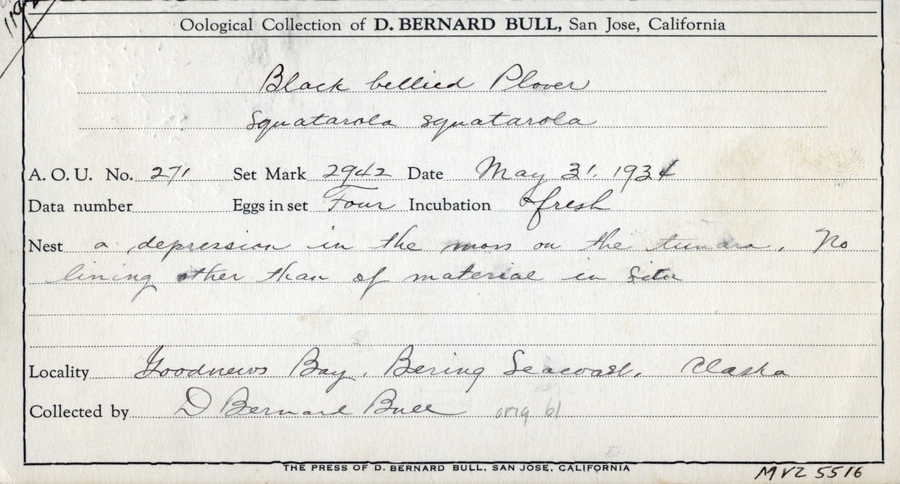 Oological Collection of D. BERNARD BULL, San Jose, California
Black bellied Plover
Squatarola squatarola
A. O. U. No. 271 Set Mark 2942 Date May 31 1934
Data number Eggs in set Four Incubation fresh
Nest a depression in the moss on the tundra. No
lining other than of material in situ
Locality Goodnews Bay, Bering Seacoast, Alaska
Collected by D Bernard Bull orig 61
THE PRESS OF D. BERNARD BULL, SAN JOSE, CALIFORNIA
MVZ 5516